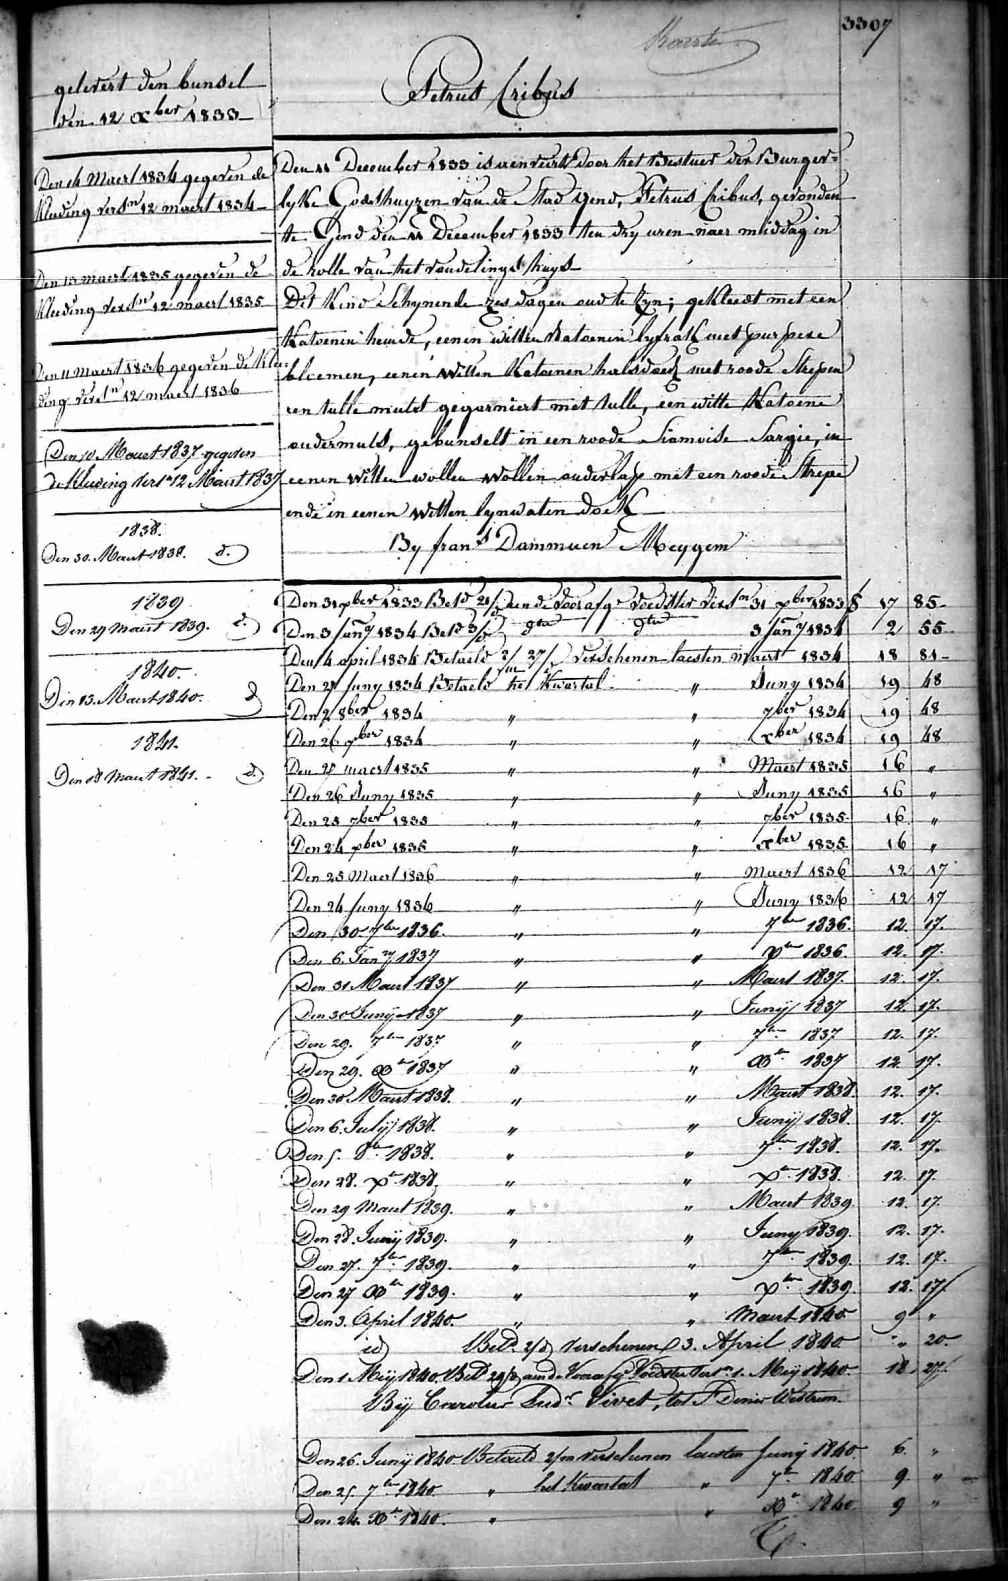 3307
Petrus Cribus
gelevert den bunsel
den 12 xber 1833
Den 14 Maert 1834 gegeven de
kleeding versn 12 maert 1834
Den 13 maert 1835 gegeven de
kleeding versn 12 maert 1835
Den 11 Maert 1836 gegeven de klee-
ding versn 12 maert 1836
Den 10 Maert 1837 gegeven
de kleeding versn 12 Maert 1837
1838.
Den 30. Maert 1838. d.
1839
Den 29 Maert 1839. d.
1840.
Den 13. Maert 1840. d
1841.
Den 18 Maert 1841. d
Den 11 December 1833 is door het Bestuer der Burger-
lyke Godshuyzen van de Stad Gend, Petrus Cribus, gevonden
te Gend den 11 December 1833 ten dry uren naer middag in
de rolle van het vondelings huys
Dit Kind Schynende zes dagen oud te zyn; gekleedt met een
Katoenen hemde, eenen witten Katoenen lyfrak met purpere
bloemen, eenen Witten Katoenen halsdoek met roode Strepen
een tulle muts gegarniert met tulle, een witte Katoene
ondermuts, gebunselt in een roode Siamoise Sargie, in
eenen Witten wollen Wollen onderlap met een roode Strepe
ende in eenen Witten lynwaten doek
By frans Dammuen Meygem
Den 31 xber 1833 Betd 21/d aen de voorafge voedster versn 31 xber 1833 f 17 85
Den 3 Jany 1834 Betd 3/d dto dto 3 Jany 1834 2 55
Den 4 april 1834 Betaeld 2/m 27/d verschenen laesten maert 1834 18 81
Den 27 Juny 1834 Betaeld het Kwartal " Juny 1834 19 48
Den 2 8ber 1834 " " 7ber 1834 19 48
Den 26 xber 1834 " " xber 1834 19 48
Den 27 maert 1835 " " Maert 1835 16 "
Den 26 Juny 1835 " " Juny 1835 16 "
Den 25 7ber 1835 " " 7ber 1835 16 "
Den 24 xber 1835 " " xber 1835 16 "
Den 25 Maert 1836 " " maert 1836 12 17
Den 24 Juny 1836 " " Juny 1836 12 17
Den 30 7ber 1836. " " 7ber 1836. 12. 17.
Den 6. Jany 1837 " " xber 1836. 12. 17.
Den 31 Maert 1837 " " Maert 1837. 12. 17.
Den 30 Junij 1837 " " Junij 1837 12. 17.
Den 29. 7ber 1837. " " 7ber 1837 12. 17.
Den 29. xber 1837 " " xber 1837 12. 17.
Den 30 Maert 1838. " " Maert 1838. 12. 17.
Den 6. Julij 1838. " " Junij 1838. 12. 17.
Den 5. 8ber 1838. " " 7ber 1838. 12. 17.
Den 28. xber 1838. " " xber 1838. 12. 17.
Den 29 Maert 1839. " " Maert 1839. 12. 17.
Den 28. Junij 1839. " " Junij 1839. 12. 17.
Den 27. 7ber 1839. " " 7ber 1839. 12. 17.
Den 27 xber 1839. " " xber 1839. 12. 17
Den 3. April 1840. " " Maert 1840 9 "
id Betd. 2/d verschenen 3. April 1840 " 20.
Den 1 Meij 1840. Betd 29/d aen de Voorafge Voedster versn 1. Meij 1840. 18. 27
Bij Carolus Livet, tot
Den 26. Junij 1840 Betaeld 2/m verschenen laesten Junij 1840. 6. "
Den 25 7ber 1840 " het Kwartal " 7ber 1840 9 "
Den 24 xber 1840. " " xber 1840 9 "